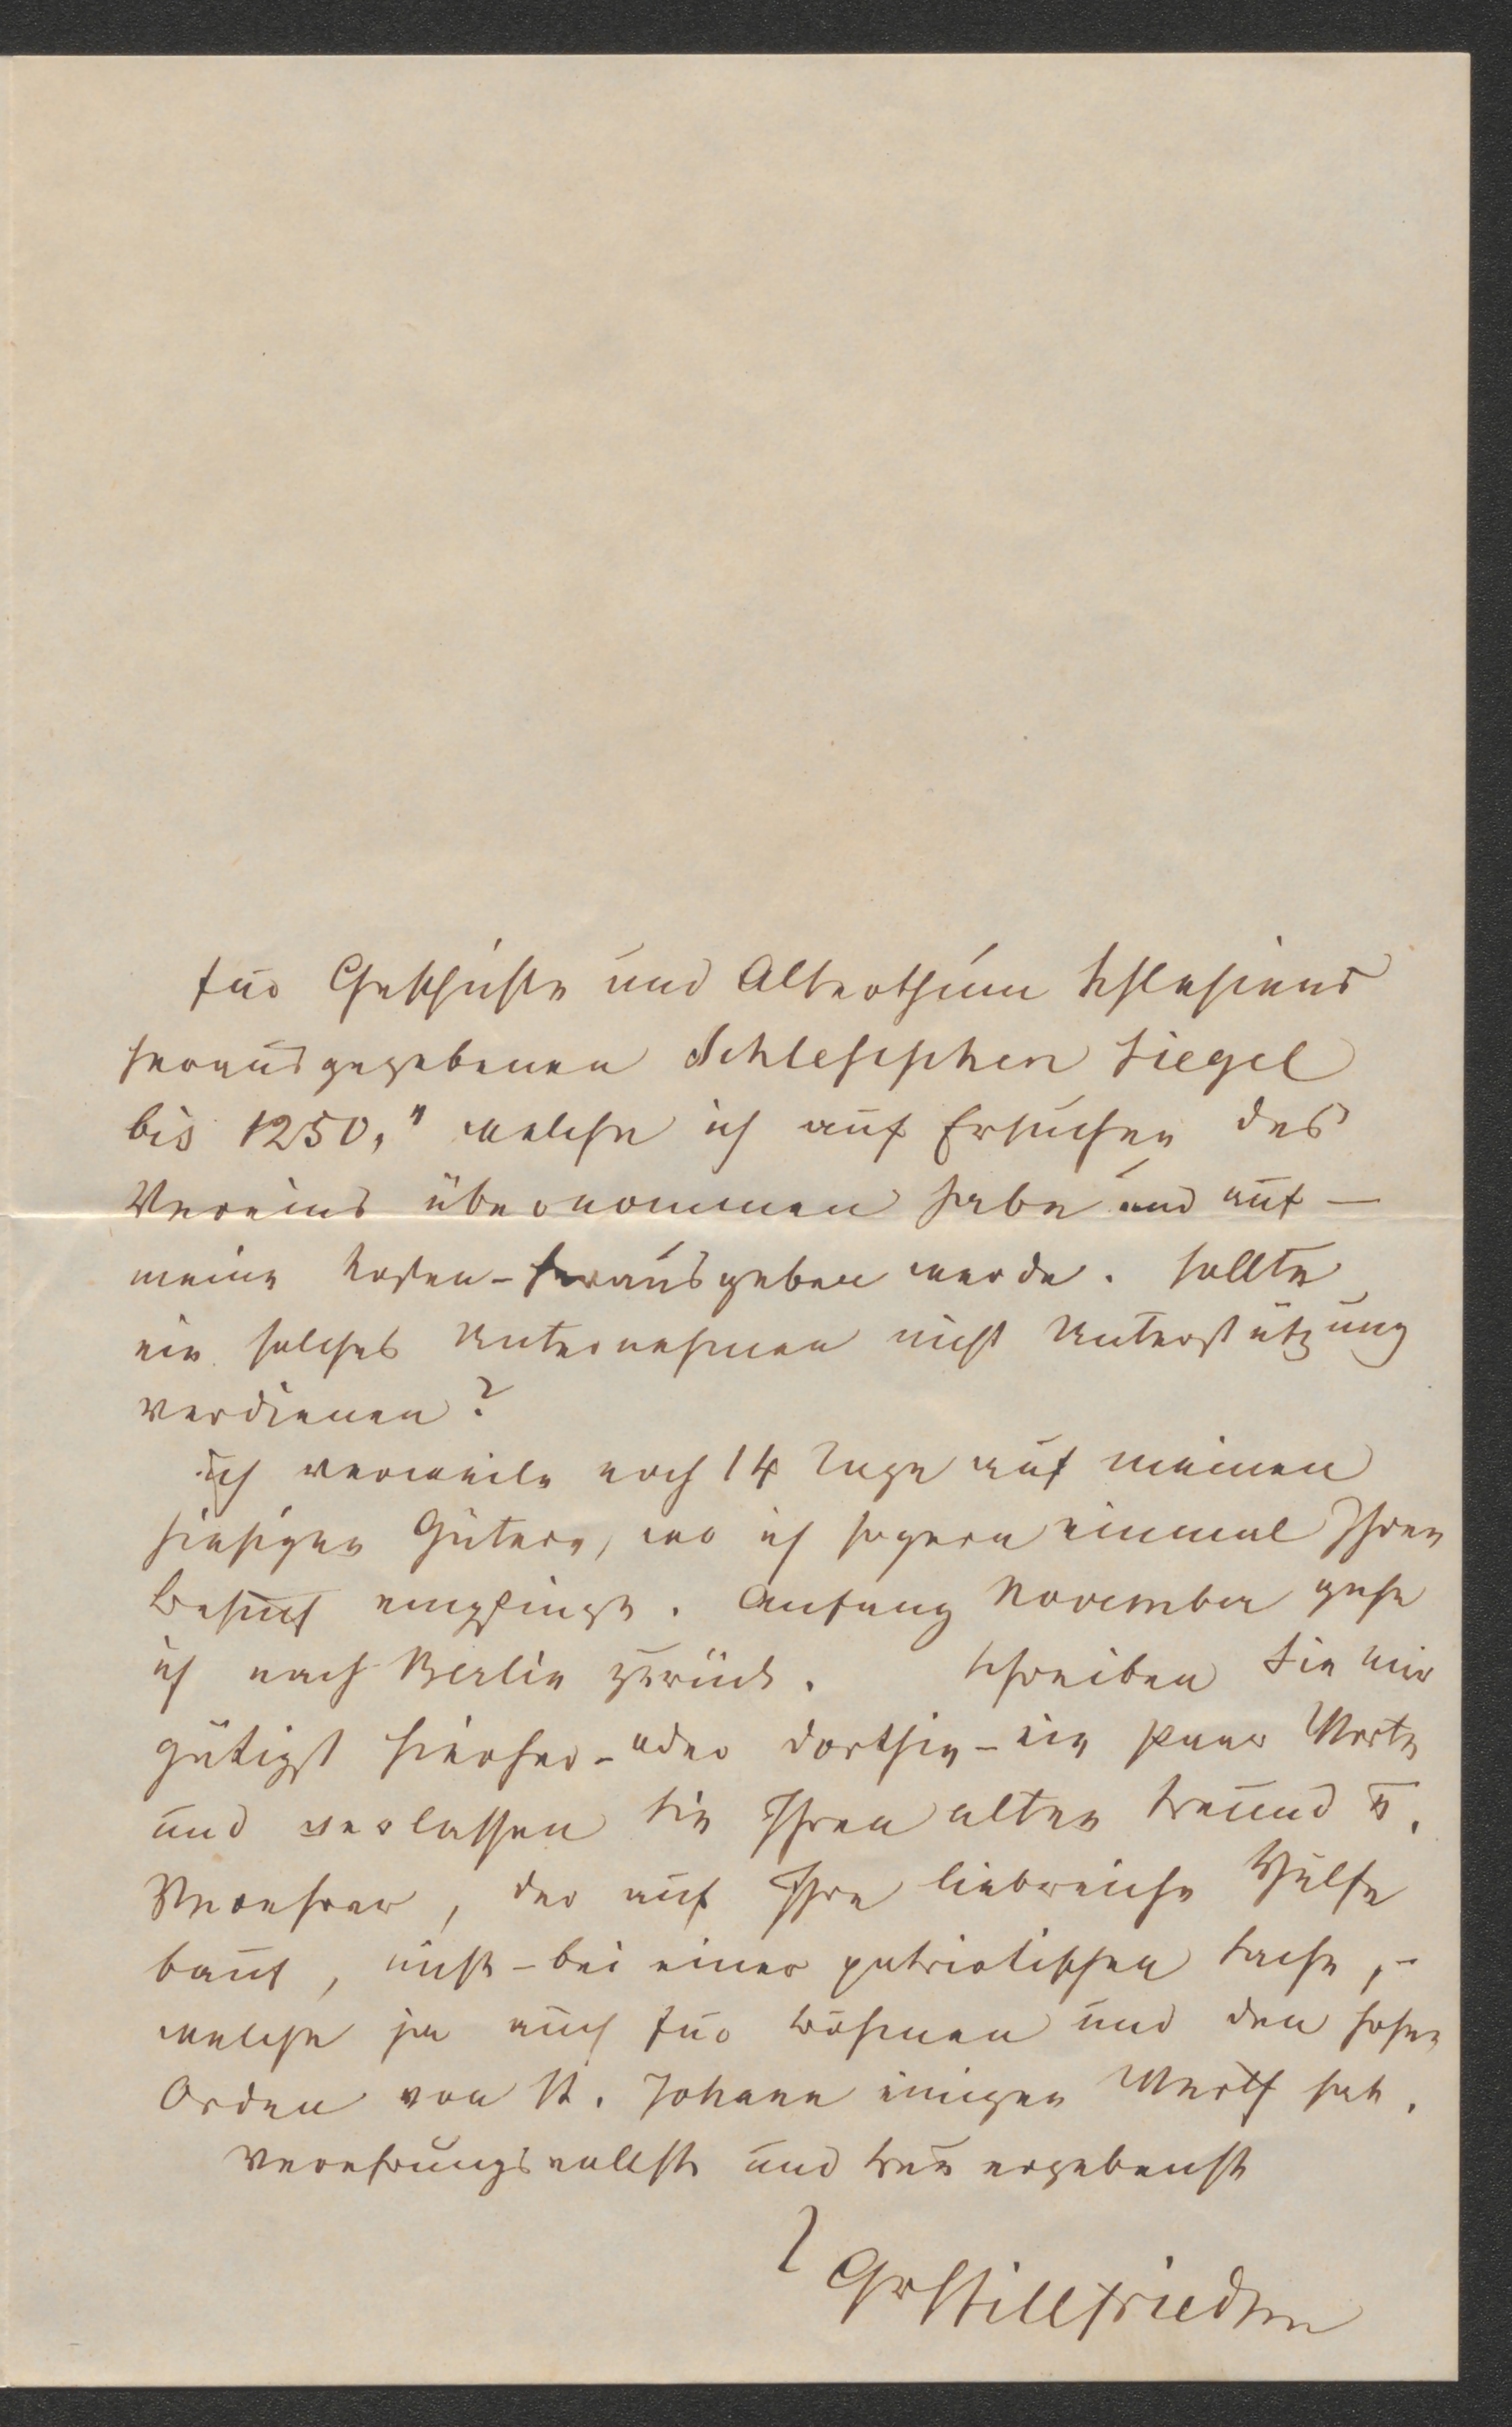 für Geschichte und Alterthum Schlesiens
herausgegebenen Schlesischen Siegel
bis 1250," welche ich auf Ersuchen des
Vereins übernommen habe und auf —
meine Kosten - herausgeben werde. Sollte
ein solches Unternehmen nicht Unterstützung
verdienen?
Ich verweile noch 14 Tage auf meinen
hiesigen Gütern, wo ich so gern einmal Ihren
Besuch empfinge. Anfang November gehe
ich nach Berlin zurück. Schreiben Sie mir
gütigst hierher - oder dorthin - ein paar Worte
und verlassen Sie Ihren alten Freund u.
Verehrer, der auf Ihre liebreiche Hülfe
baut, nicht - bei einer patriotischen Sache, -
welche ja auch für Böhmen und den hohen
Orden von St. Johann einigen Werth hat.
Verehrungsvollst und treu ergebenst
Gr Stillfried